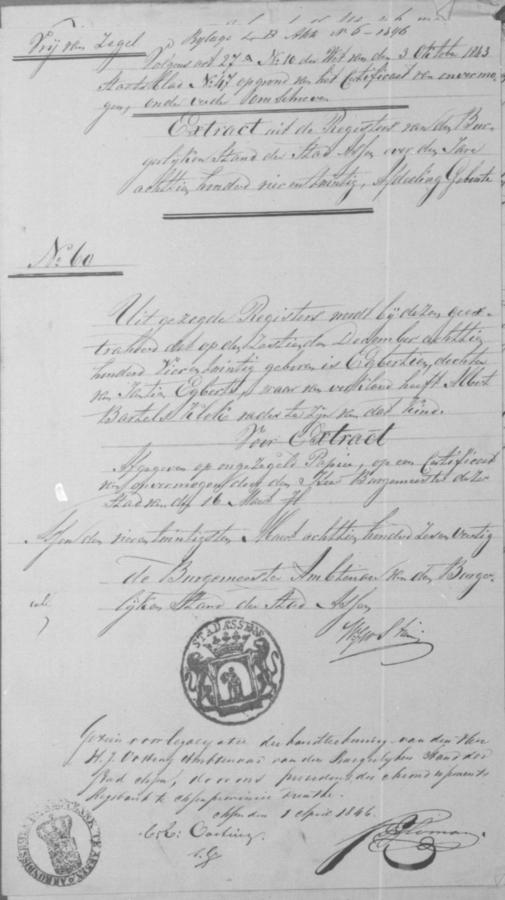 Vrij van Zegel
Bylage L B Akte N 6 - 1846
Volgens art 27 a No 10 der Wet van den 3 Oktober 1843
Staatsblad No 47 op grond van het Certificaat van onvermo-
gen, onder verder omschreven
Extract uit de Registers van den Bur-
gerlijken Stand der Stad Assen over den Jare
achttien honderd vier en twintig, Afdeeling Geboorte
No 60
Uit gezegde Registers wordt bij dezen geex-
traheerd dat op den December achttien
honderd vier en twintig geboren is Egbertien, dochter
van Jantien Egberts, waar van verklaard heeft Albert
Bartels vader te zijn van dat kind.
Voor Extract
Afgegeven op ongezegeld Papier, op een Certificaat
van onvermogen door den Heer Burgemeester dezer
Stad van den 16 Maart
Assen den vier en twintigsten Maart achttien honderd zes en veertig
de Burgemeester Ambtenaar van den Burger-
lijken Stand der Stad Assen
STAD ASSEN
Gezien voor legalisatie der handteekening van den Heer
H. J. Ambtenaar van den Burgerlyken Stand der
Stad Assen, door ons president der arrondissements
Regtbank te Assen provincie Drenthe.
Assen den 1 April 1846.